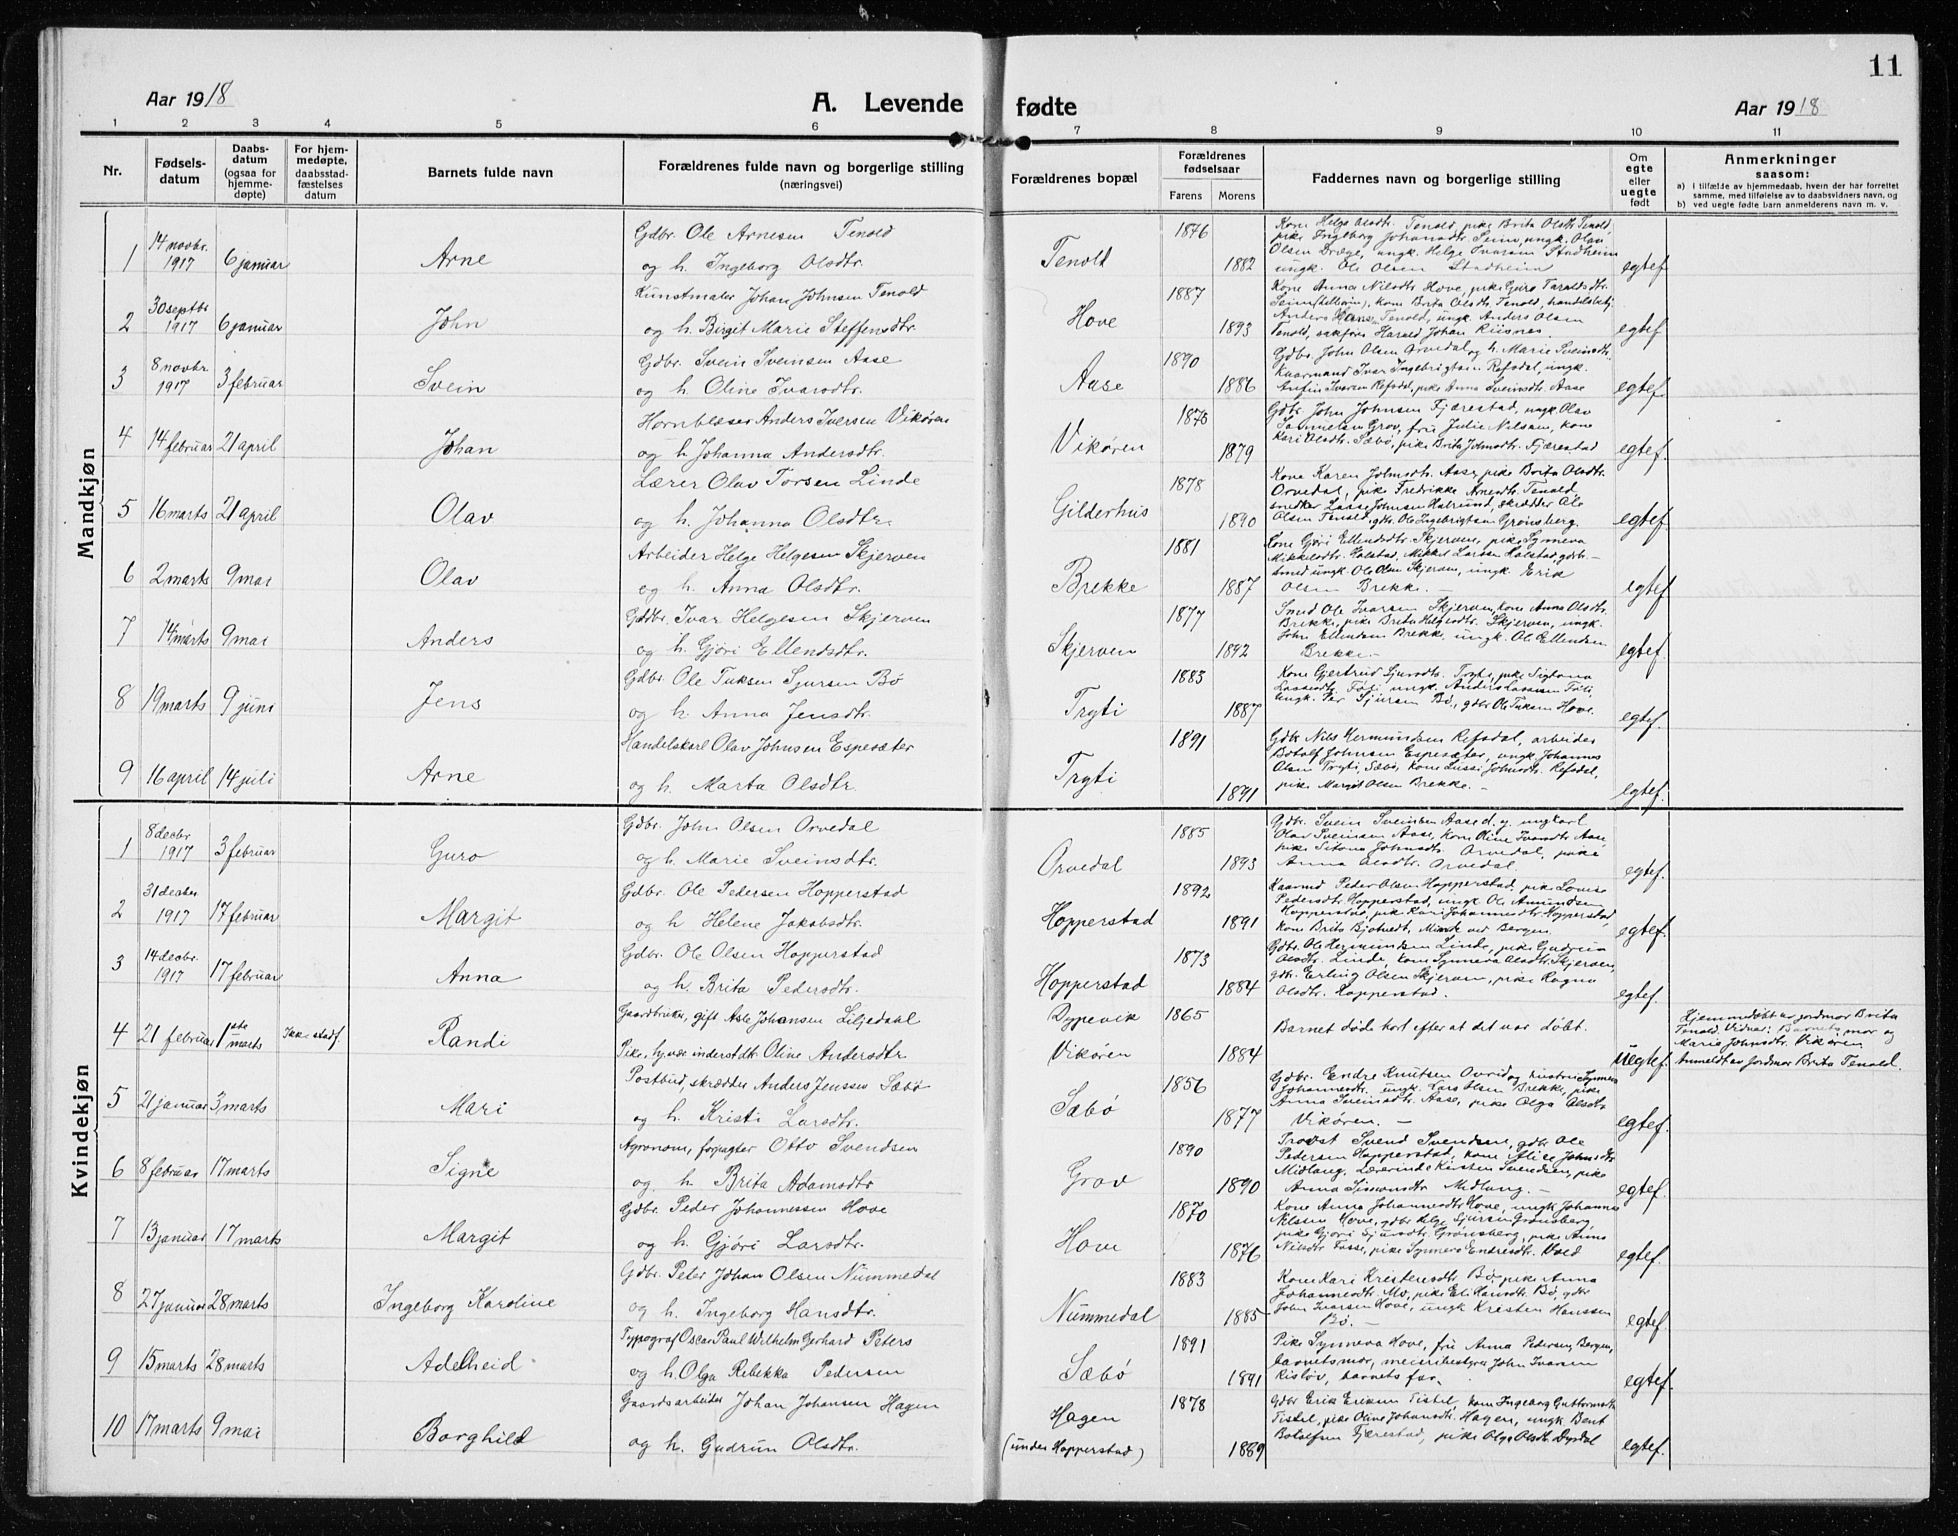 11
Aar 1918
A. Levende fødte
Aar 1918
1 2 3 4 5 6 7 8 9 10 11
Nr.
Fødsels-
datum
Daabs-
datum
(ogsaa for
hjemme-
døpte)
For hjem-
medøpte,
daabsstad-
fæstelses
datum
Barnets fulde navn
Forældrenes fulde navn og borgerlige stilling
(næringsvei)
Forældrenes bopæl
Forældrenes
fødselsaar
Farens Morens
Faddernes navn og borgerlige stilling
Om
egte
eller
uegte
født
Anmerkninger
saasom:
a) I tilfælde av hjemmedaab, hvem der har forrettet
samme, med tilføielse av to daabsvidners navn, og
b) ved uegte fødte barn anmelderens navn m. v.
Mandkjøn
1 14 novbr. 1917 6 januar Arne
Gdbr. Ole Arnesen Tenold
og h. Ingeborg Olsdtr.
Tenold 1876 1882
Kone Helga Olsdtr. Tenold, pike Brita Olsdtr. Tenold,
pike Ingeborg Johansdtr. Seim, ungk. Olav
Olsen Dræge, ungk. Helge Ivarsen Stadheim
ungk. Ole Olsen Stadheim
egtef.
2 30 septbr 1917 6 januar John
Kunstmaler Johan Johnsen Tenold
og h. Birgit Marie Steffensdtr.
Hove 1887 1893
Kone Anna Nilsdtr. Hove, pike Guro Taraldsdtr.
Seim, kone Brita Olsdtr. Tenold, handelsbetj.
Anders Hansen Tenold, ungk. Anders Olsen
Tenold, sakfører Harald Johan Riisnes
egtef.
3 8 novbr 1917 3 februar Svein
Gdbr. Svein Sveinsen Aase
og h. Oline Ivarsdtr.
Aase 1890 1886
Gdbr. John Olsen Orvedal og h. Marie Sveinsdtr.
Kaarmand Ivar Ingebrigtsen Refsdal, ungk.
Anfin Ivarsen Refsdal, pike Anna Sveinsdtr. Aase
egtef.
4 14 februar 21 april Johan
Hornblæser Anders Iversen Vikøren
og h. Johanna Andersdtr.
Vikøren 1870 1879
Gdbr. John Johnsen Fjærestad, ungk. Olav
Samuelsen Grov, fru Julie Nilsen, kone
Kari Olsdtr. Sæbø, pike Brita Johnsdtr. Fjærestad
egtef.
5 16 marts 21 april Olav
Lærer Olav Torsen Linde
og h. Johanna Olsdtr.
Gilderhus 1878 1890
Kone Karen Johnsdtr. Aase, pike Brita Olsdtr.
Orvedal, pike Fredrikke Arnesdtr. Tenold
snedker Lasse Johnsen Halrund, skrædder Ole
Olsen Tenold, gdbr. Ole Ingebrigtsen Grønsberg.
egtef.
6 2 marts 9 mai Olav
Arbeider Helge Helgesen Skjerven
og h. Anna Olsdtr.
Brekke 1881 1887
Kone Gjøri Ellendsdtr. Skjerven, pike Synneva
Mikkelsdtr. Holstad, Mikkel Larsen Holstad gdbr.
Arned ungk. Ole Olsen Skjerven, ungk. Erik
Olsen Brekke.
egtef.
7 14 marts 9 mai Anders
Gdbr. Ivar Helgesen Skjerven
og h. Gjøri Ellendsdtr.
Skjerven 1877 1892
Smed Ole Ivarsen Skjerven, kone Anna Olsdtr.
Brekke, pike Brita Helgesdtr. Skjerven, ungk.
John Ellendsen Brekke, ungk. Ole Ellendsen
Brekke.
egtef.
8 19 marts 9 juni Jens
Gdbr. Ole Tuksen Sjursen Bø
og h. Anna Jensdtr.
Tryti 1883 1887
Kone Gjertrud Sjursdtr. Tryti, pike Siglona
Lassesdtr. Føli, ungk. Anders Lassesen Føli,
ungk. Per Sjursen Bø, gdbr. Ole Tuksen Hove.
egtef.
9 16 april 14 juli Arne
Handelskarl Olav Johnsen Espesæter
og h. Marta Olsdtr.
Tryti 1891 1891
Gdbr. Nils Hermundsen Refsdal, arbeider
Botolf Johnsen Espesæter, ungk. Johannes
Olsen Tryti, Sæbø, kone Lussi Johnsdtr. Refsdal,
pike Margit Olsen Brekke.
egtef.
Kvindekjøn
1 8 decbr 1917 3 februar Guro
Gdbr. John Olsen Orvedal
og h. Marie Sveinsdtr.
Orvedal 1885 1893
Gdbr. Svein Sveinsen Aase d. y. ungkarl
Olav Sveinsen Aase, kone Oline Ivarsdtr. Aase,
pike Sitona Johnsdtr. Orvedal, pike
Anna Olsdtr. Orvedal
egtef.
2 31 decbr 1917 17 februar Margit
Gdbr. Ole Pedersen Hopperstad
og h. Helene Jakobsdtr.
Hopperstad 1892 1891
Kaarmd Peder Olsen Hopperstad, pike Lovise
Pedersdtr. Hopperstad, ungk Ole Amundsen
Hopperstad, pike Kari Johannesdtr. Hopperstad,
kone Brita Bjotvedt, Minde ved Bergen.
egtef.
3 14 decbr. 1917 17 februar Anna
Gdbr. Ole Olsen Hopperstad
og h. Brita Pedersdtr.
Hopperstad 1873 1884
Gdbr. Ole Hermundsen Linde, pike Gudrun
Olsdtr. Linde, kone Synneva Olsdtr. Skjerven,
gdbr. Erling Olsen Skjerven, pike Ragna
Olsdtr. Hopperstad.
egtef.
4 21 februar 1ste marts Ikke stadf. Randi
Gaardbruker, gift Asle Johansen Liljedahl
Pike, hjemmeværende inderstdtr. Oline Andersdtr
Dypevik 1865
Vikøren 1884
Barnet døde kort efter at det var døbt.
uegtef.
Hjemmedøbt av jordmor Brita
Tenold. Vidner: Barnets mor og
Marie Johnsdtr. Vikøren
Anmeldt av Jordmor Brita Tenold.
5 21 januar 3 marts Mari
Postbud, skrædder Anders Jenssen Sæbø
og h. Kristi Larsdtr.
Sæbø 1856 1877
Gdbr. Endre Knutsen Ovrid og hustru Synneva
Johannesdtr. ungk. Lars Olsen Brekke, pike
Anna Sveinsdtr. Aase, pike Olga Olsdtr
Vikøren.
egtef.
6 8 februar 17 marts Signe
Agronom, forpagter Otto Svendsen
og h. Brita Adamsdtr
Grov 1890 1890
Provst Svend Svendsen, gdbr. Ole
Pedersen Hopperstad, kone Alice Johnsdtr
Midlang, Lærerinde Kirsten Svendsen, pike
Anna Simonsdtr Midlang.
egtef.
7 13 januar 17 marts Margit
Gdbr. Peder Johannessen Hove
og h. Gjøri Larsdtr.
Hove 1870 1876
Kone Anna Johannesdtr Hove, ungk Johannes
Nilsen Hove, gdbr Helge Sjursen Grønsberg,
pike Gjøri Sjursdtr. Grønsberg, pike Anna
Nilsdtr Fosse, pike Synneva Endresdtr. Vold
egtef.
8 27 januar 28 marts Ingeborg Karoline
Gdbr. Peter Johan Olsen Nummedal
og h. Ingeborg Hansdtr.
Nummedal 1883 1885
Kone Kari Kristensdtr. Bø, pike Anna
Johannesdtr. Mo, pike Eli Hansdtr Bø, gdbr
John Ivarsen Hove, ungk Kristen Hanssen
Bø.
egtef.
9 15 marts 28 marts Adelheid
Typograf Oscar Paul Wilhelm Gerhard Peters
og h. Olga Rebekka Pedersen
Sæbø 1891 1891
Pike Synneva Hove, fru Anna Pedersen, Bergen,
barnets mor, meieribestyrer John Ivarsen
Risløv, barnets far.
egtef.
10 17 marts 9 mai Borghild
Gaardsarbeider Johan Johansen Hagen
og h. Gudrun Olsdtr.
Hagen
(under Hopperstad) 1878 1889
Gdbr Erik Eriksen Tistel, kone Ingeborg Guttormsdtr
Tistel, pike Oline Johansdtr. Hagen, ungk. Bent
Botolfsen Fjærestad, pike Olga Olsdtr. Dysdal
egtef.